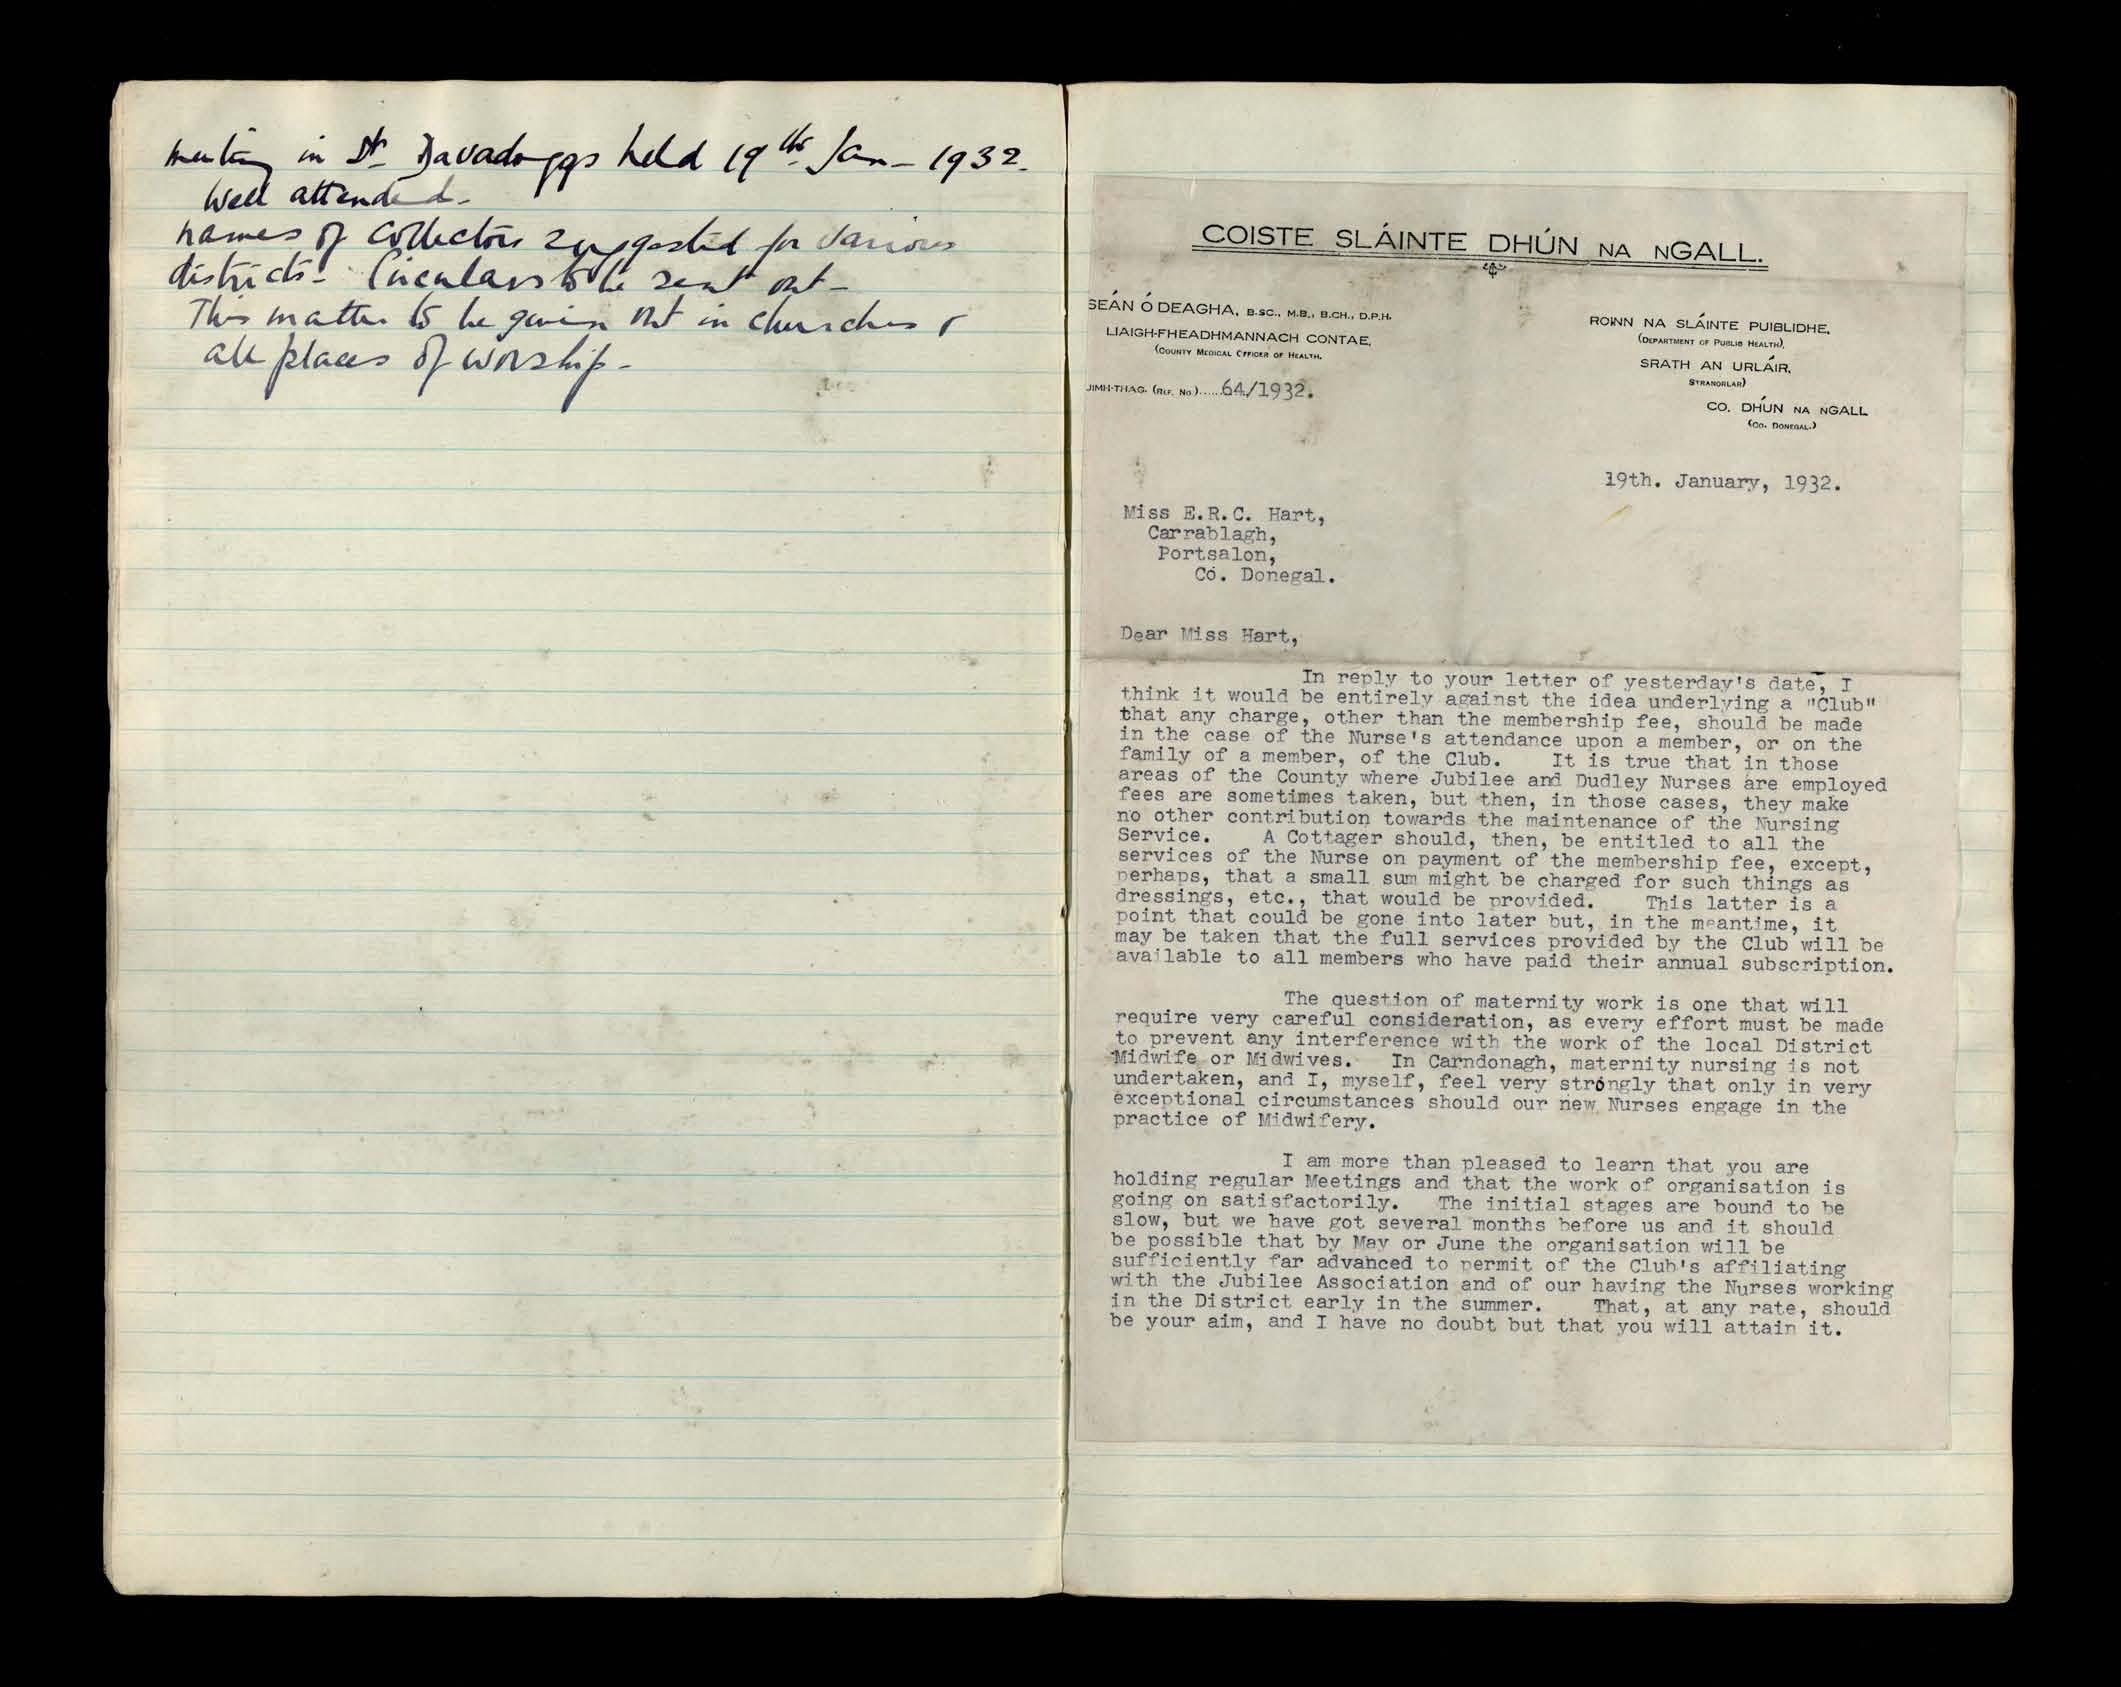 meeting in St. Davadoggs held 19th Jan - 1932.
Well attended -
names of collectors suggested for various
districts - Circulars to be sent out -
This matter to be given out in churches &
all places of worship -
COISTE SLÁINTE DHÚN NA NGALL.
SEÁN Ó DEAGHA, B.SC., M.B., B.CH., D.P.H.
LIAIGH-FHEADHMANNACH CONTAE,
(COUNTY MEDICAL OFFICER OF HEALTH.
UIMH-THAG. (REF. NO.)......64/1932.
ROINN NA SLÁINTE PUIBLIDHE,
(DEPARTMENT OF PUBLIC HEALTH),
SRATH AN URLÁIR,
STRANORLAR)
CO. DHÚN NA NGALL
(CO. DONEGAL.)
19th. January, 1932.
Miss E.R.C. Hart,
Carrablagh,
Portsalon,
Co. Donegal.
Dear Miss Hart,
In reply to your letter of yesterday's date, I
think it would be entirely against the idea underlying a "Club"
that any charge, other than the membership fee, should be made
in the case of the Nurse's attendance upon a member, or on the
family of a member, of the Club. It is true that in those
areas of the County where Jubilee and Dudley Nurses are employed
fees are sometimes taken, but then, in those cases, they make
no other contribution towards the maintenance of the Nursing
Service. A Cottager should, then, be entitled to all the
services of the Nurse on payment of the membership fee, except,
perhaps, that a small sum might be charged for such things as
dressings, etc., that would be provided. This latter is a
point that could be gone into later but, in the meantime, it
may be taken that the full services provided by the Club will be
available to all members who have paid their annual subscription.
The question of maternity work is one that will
require very careful consideration, as every effort must be made
to prevent any interference with the work of the local District
Midwife or Midwives. In Carndonagh, maternity nursing is not
undertaken, and I, myself, feel very strongly that only in very
exceptional circumstances should our new Nurses engage in the
practice of Midwifery.
I am more than pleased to learn that you are
holding regular Meetings and that the work of organisation is
going on satisfactorily. The initial stages are bound to be
slow, but we have got several months before us and it should
be possible that by May or June the organisation will be
sufficiently far advanced to permit of the Club's affiliating
with the Jubilee Association and of our having the Nurses working
in the District early in the summer. That, at any rate, should
be your aim, and I have no doubt but that you will attain it.